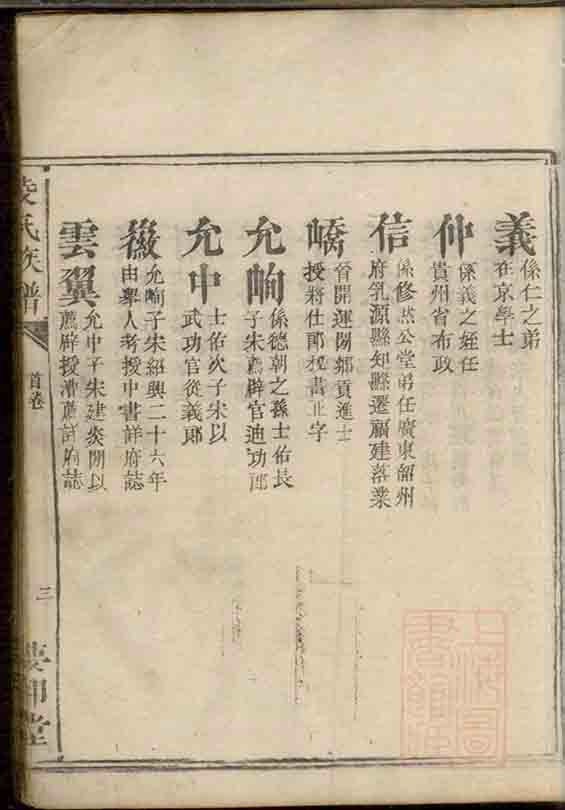 義 係仁之弟
在京學士
仲 係義之姪任
貴州省布政
信 係修然公堂弟任廣東韶州
府乳源縣知縣遷福建落業
嶠 晉開運閒鄉貢進士
授將仕郎校書正字
允晌 係德朝之孫士佑長
子宋薦辟官迪功郎
允中 士佑次子宋以
武功官從義郎
徽 允晌子宋紹興二十六年
由舉人考授中書詳府誌
雲翼 允中子宋建炎間以
薦辟授漕薦詳府誌
凌氏族譜
首卷
三
上海圖
書館藏